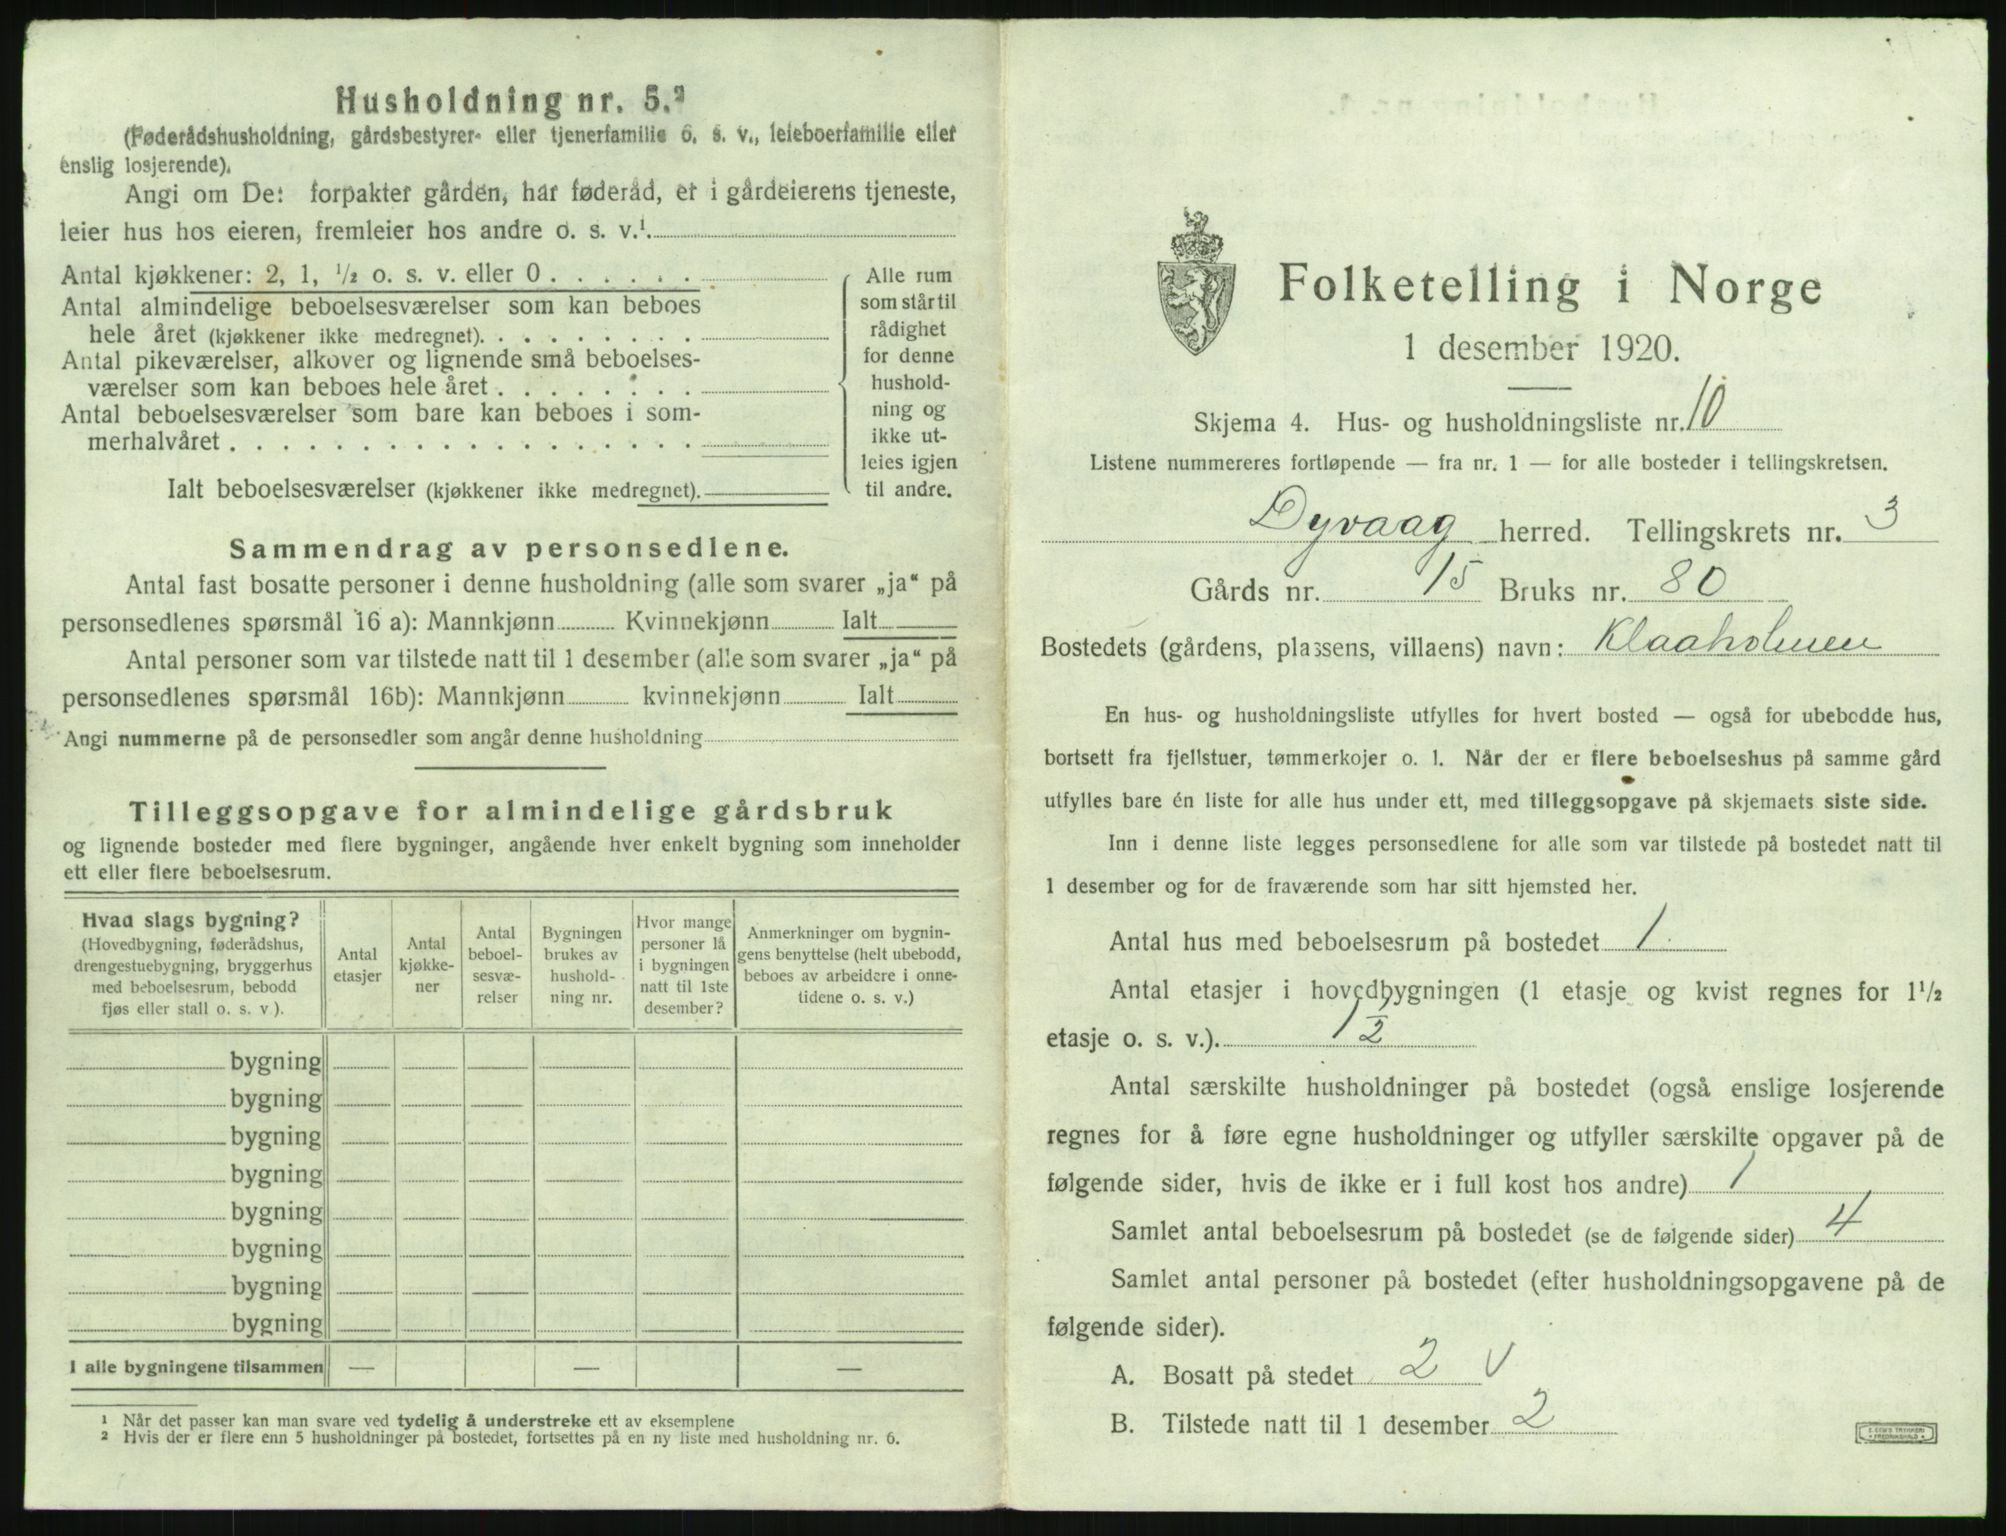 Husholdning nr. 5.²
(Føderådshusholdning, gårdsbestyrer- eller tjenerfamilie o. s. v., leieboerfamilie eller
enslig losjerende).
Angi om De: forpakter gården, har føderåd, er i gårdeierens tjeneste,
leier hus hos eieren, fremleier hos andre o. s. v.¹.
Antal kjøkkener: 2, 1, ½ o. s. v. eller 0 . . . . . .
Antal almindelige beboelsesværelser som kan beboes
hele året (kjøkkener ikke medregnet). . . . . . . . .
Antal pikeværelser, alkover og lignende små beboelses-
værelser som kan beboes hele året . . . . . . . .
Antal beboelsesværelser som bare kan beboes i som-
merhalvåret . . . . . . . . . . . . . . . . . .
Ialt beboelsesværelser (kjøkkener ikke medregnet).
Alle rum
som står til
rådighet
for denne
hushold-
ning og
ikke ut-
leies igjen
til andre.
Sammendrag av personsedlene.
Antal fast bosatte personer i denne husholdning (alle som svarer „ja“ på
personsedlenes spørsmål 16 a): Mannkjønn Kvinnekjønn Ialt
Antal personer som var tilstede natt til 1 desember (alle som svarer „ja“ på
personsedlenes spørsmål 16b): Mannkjønn kvinnekjønn Ialt
Angi nummerne på de personsedler som angår denne husholdning
Tilleggsopgave for almindelige gårdsbruk
og lignende bosteder med flere bygninger, angående hver enkelt bygning som inneholder
ett eller flere beboelsesrum.
Hvad slags bygning?
(Hovedbygning, føderådshus,
drengestuebygning, bryggerhus
med beboelsesrum, bebodd
fjøs eller stall o. s. v ).
Antal
etasjer
Antal
kjøkke-
ner
Antal
beboel-
sesvæ-
relser
Bygningen
brukes av
hushold-
ning nr.
Hvor mange
personer lå
i bygningen
natt til 1ste
desember?
Anmerkninger om bygnin-
gens benyttelse (helt ubebodd,
beboes av arbeidere i onne-
tidene o. s. v.)
bygning
bygning
bygning
bygning
bygning
bygning
bygning
bygning
I alle bygningene tilsammen — — —
¹ Når det passer kan man svare ved tydelig å understreke ett av eksemplene
² Hvis der er flere enn 5 husholdninger på bostedet, fortsettes på en ny liste med husholdning nr. 6.
Folketelling i Norge
1 desember 1920.
Skjema 4. Hus- og husholdningsliste nr. 10
Listene nummereres fortløpende — fra nr. 1 — for alle bosteder i tellingskretsen.
Dyvaag herred. Tellingskrets nr. 3
Gårds nr. 15 Bruks nr. 80
Bostedets (gårdens, plassens, villaens) navn: Klaaholmen
En hus- og husholdningsliste utfylles for hvert bosted — også for ubebodde hus,
bortsett fra fjellstuer, tømmerkojer o. l. Når der er flere beboelseshus på samme gård
utfylles bare én liste for alle hus under ett, med tilleggsopgave på skjemaets siste side.
Inn i denne liste legges personsedlene for alle som var tilstede på bostedet natt til
1 desember og for de fraværende som har sitt hjemsted her.
Antal hus med beboelsesrum på bostedet 1.
Antal etasjer i hovedbygningen (1 etasje og kvist regnes for 1½
etasje o. s. v.). 1½
Antal særskilte husholdninger på bostedet (også enslige losjerende
regnes for å føre egne husholdninger og utfyller særskilte opgaver på de
følgende sider, hvis de ikke er i full kost hos andre) 1
Samlet antal beboelsesrum på bostedet (se de følgende sider) 4
Samlet antal personer på bostedet (efter husholdningsopgavene på de
følgende sider).
A. Bosatt på stedet 2 v
B. Tilstede natt til 1 desember 2